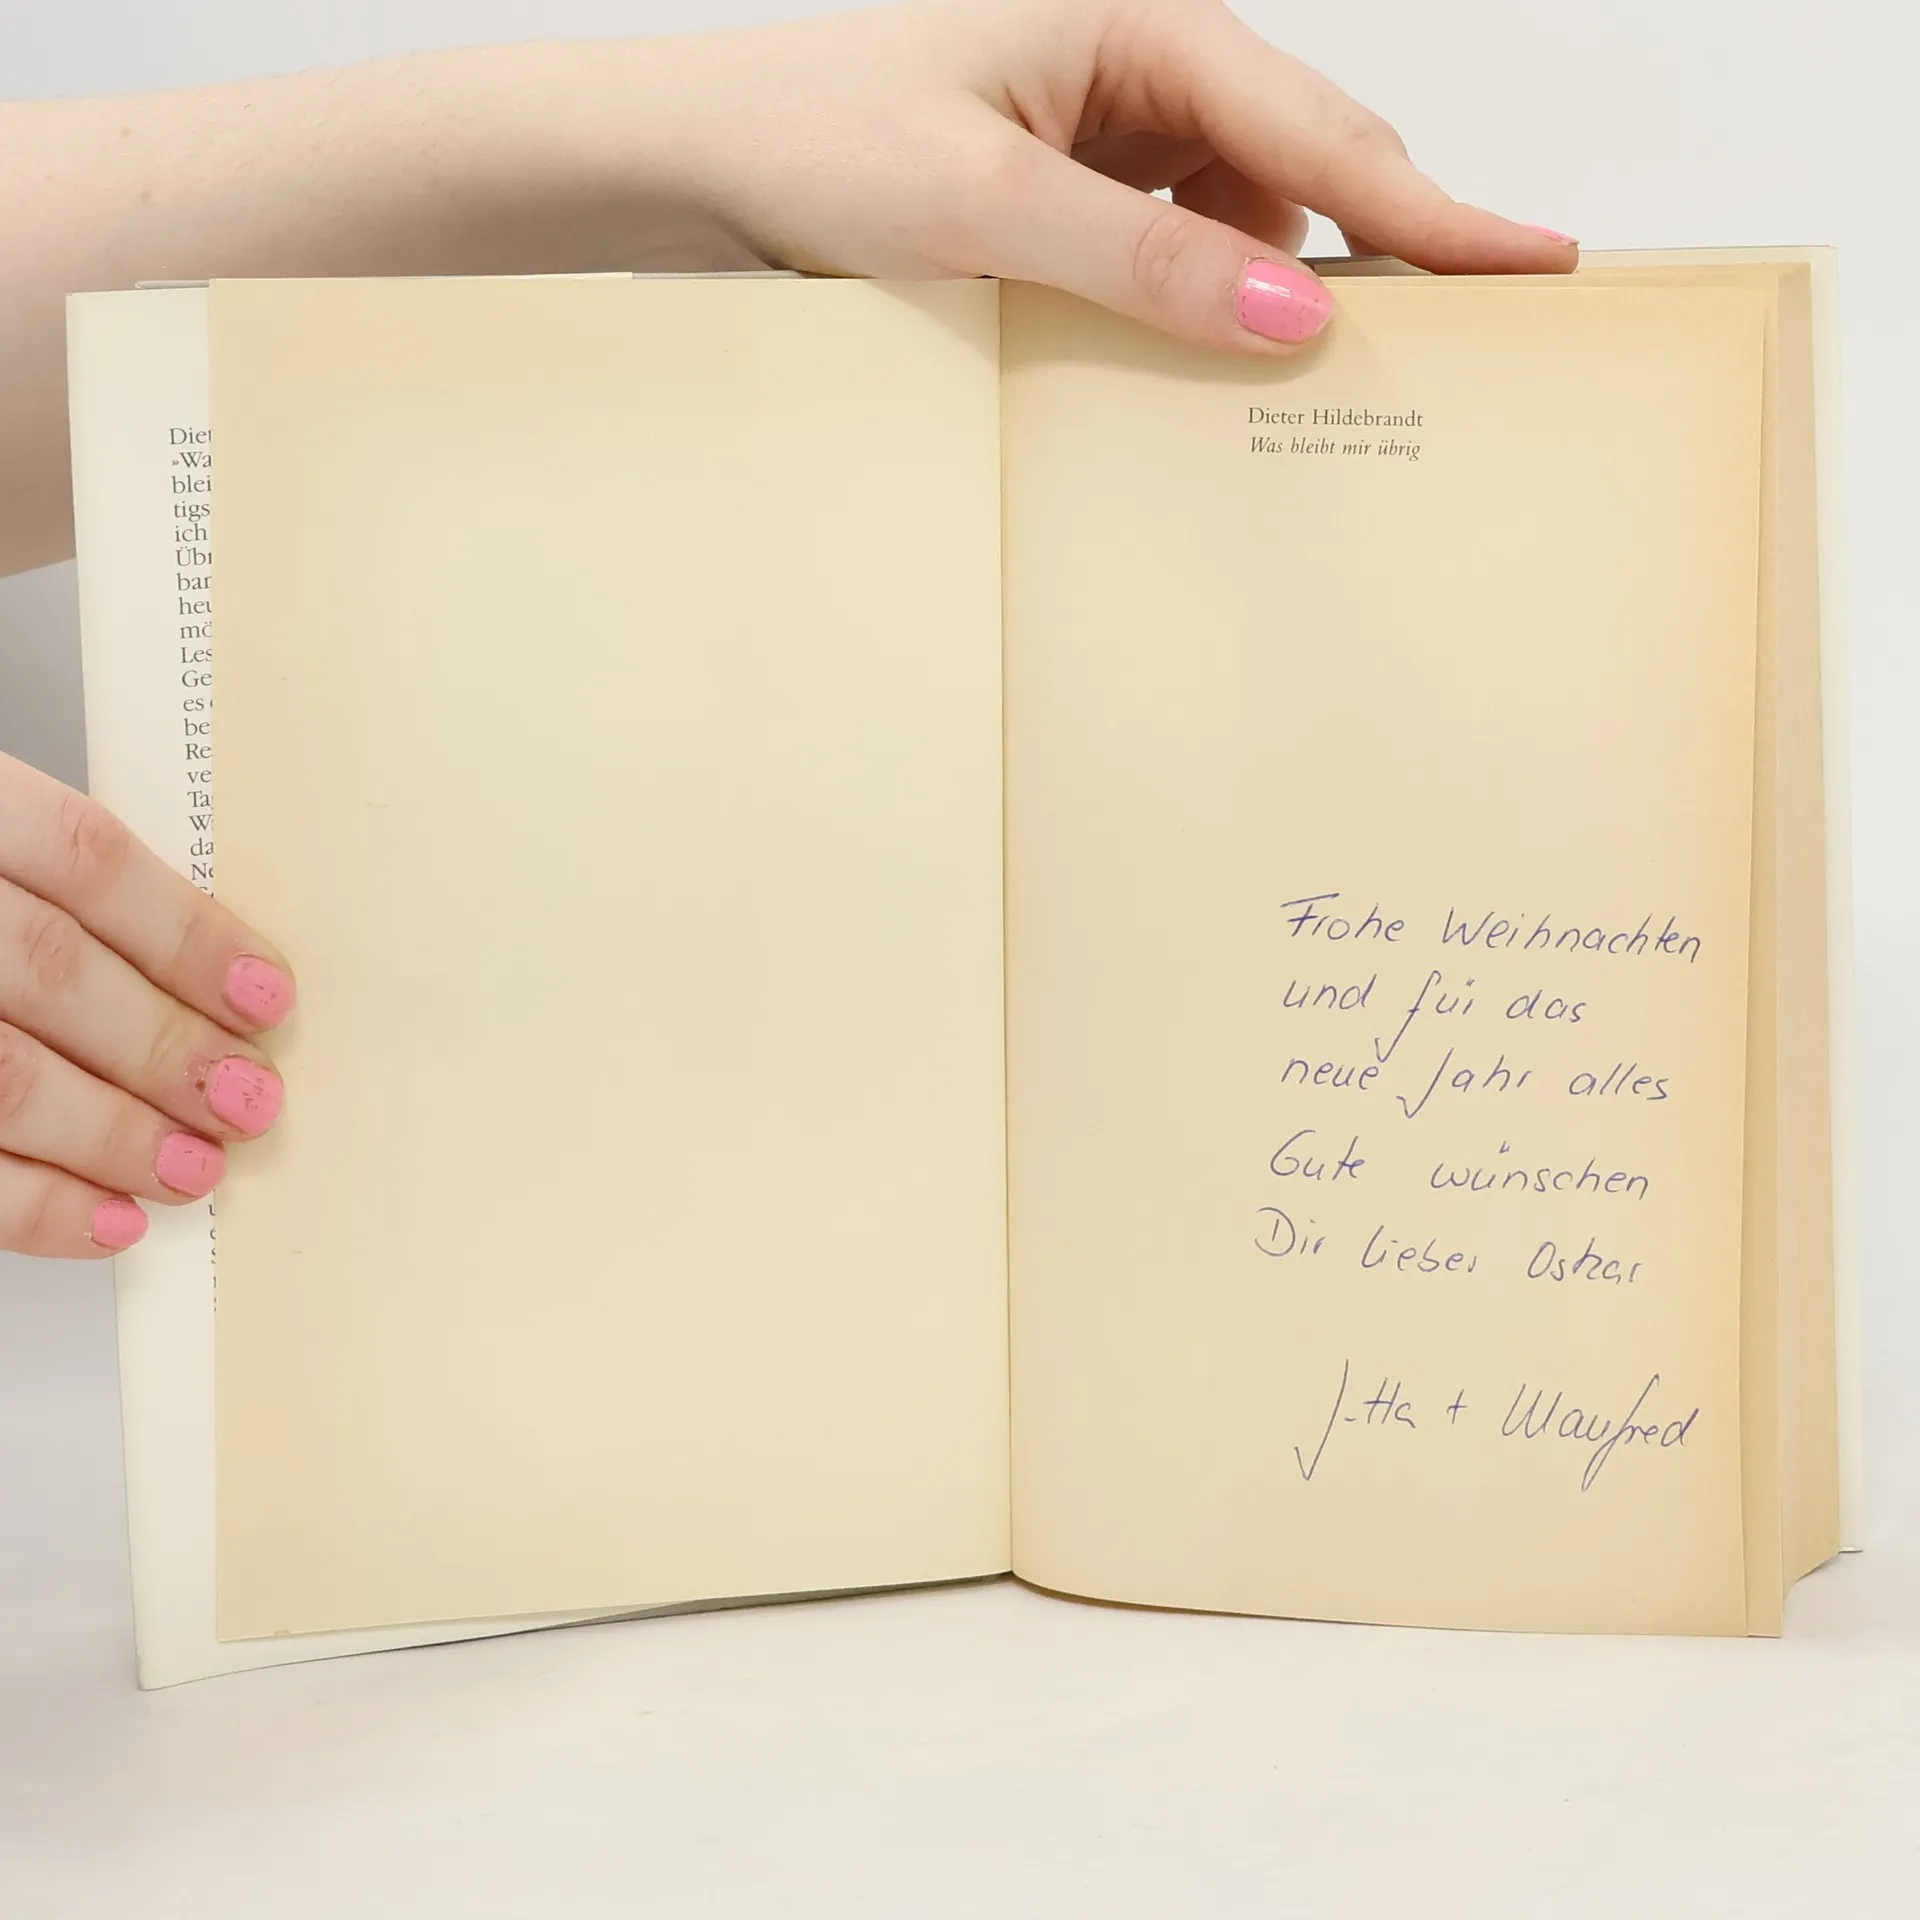 Diet
»Wa
blei
tigs
ich
Übr
bar
heu
mö
Les
Ge
es
be
Re
ve
Ta
W
da
Ne
Dieter Hildebrandt
Was bleibt mir übrig
Frohe Weihnachten
und für das
neue Jahr alles
Gute wünschen
Dir lieber Oskar
Jutta + Manfred